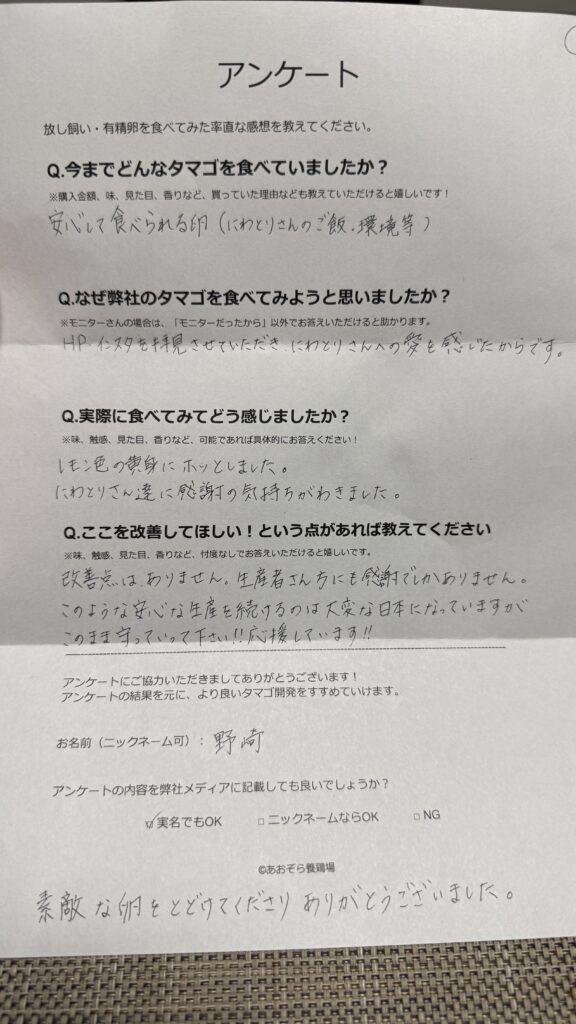 アンケート
放し飼い・有精卵を食べてみた率直な感想を教えてください。
Q.今までどんなタマゴを食べていましたか？
※購入金額、味、見た目、香りなど、買っていた理由なども教えていただけると嬉しいです！
安心して食べられる卵(にわとりさんのご飯、環境等)
Q.なぜ弊社のタマゴを食べてみようと思いましたか？
※モニターさんの場合は、「モニターだったから」以外でお答えいただけると助かります。
HP、インスタを拝見させていただき、にわとりさんへの愛を感じたからです。
Q.実際に食べてみてどう感じましたか？
※味、触感、見た目、香りなど、可能であれば具体的にお答えください！
レモン色の黄身にホッとしました。
にわとりさん達に感謝の気持ちがわきました。
Q.ここを改善してほしい！という点があれば教えてください
※味、触感、見た目、香りなど、忖度なしでお答えいただけると嬉しいです。
改善点はありません。生産者さん方にも感謝でしかありません。
このような安心な生産を続けるのは大変な日本になっていますが
このまま守っていって下さい!!応援しています!!
アンケートにご協力いただきましてありがとうございます！
アンケートの結果を元に、より良いタマゴ開発をすすめていけます。
お名前（ニックネーム可）：野崎
アンケートの内容を弊社メディアに記載しても良いでしょうか？
☑実名でもOK □ニックネームならOK □NG
©あおぞら養鶏場
素敵な卵をとどけてくださりありがとうございました。